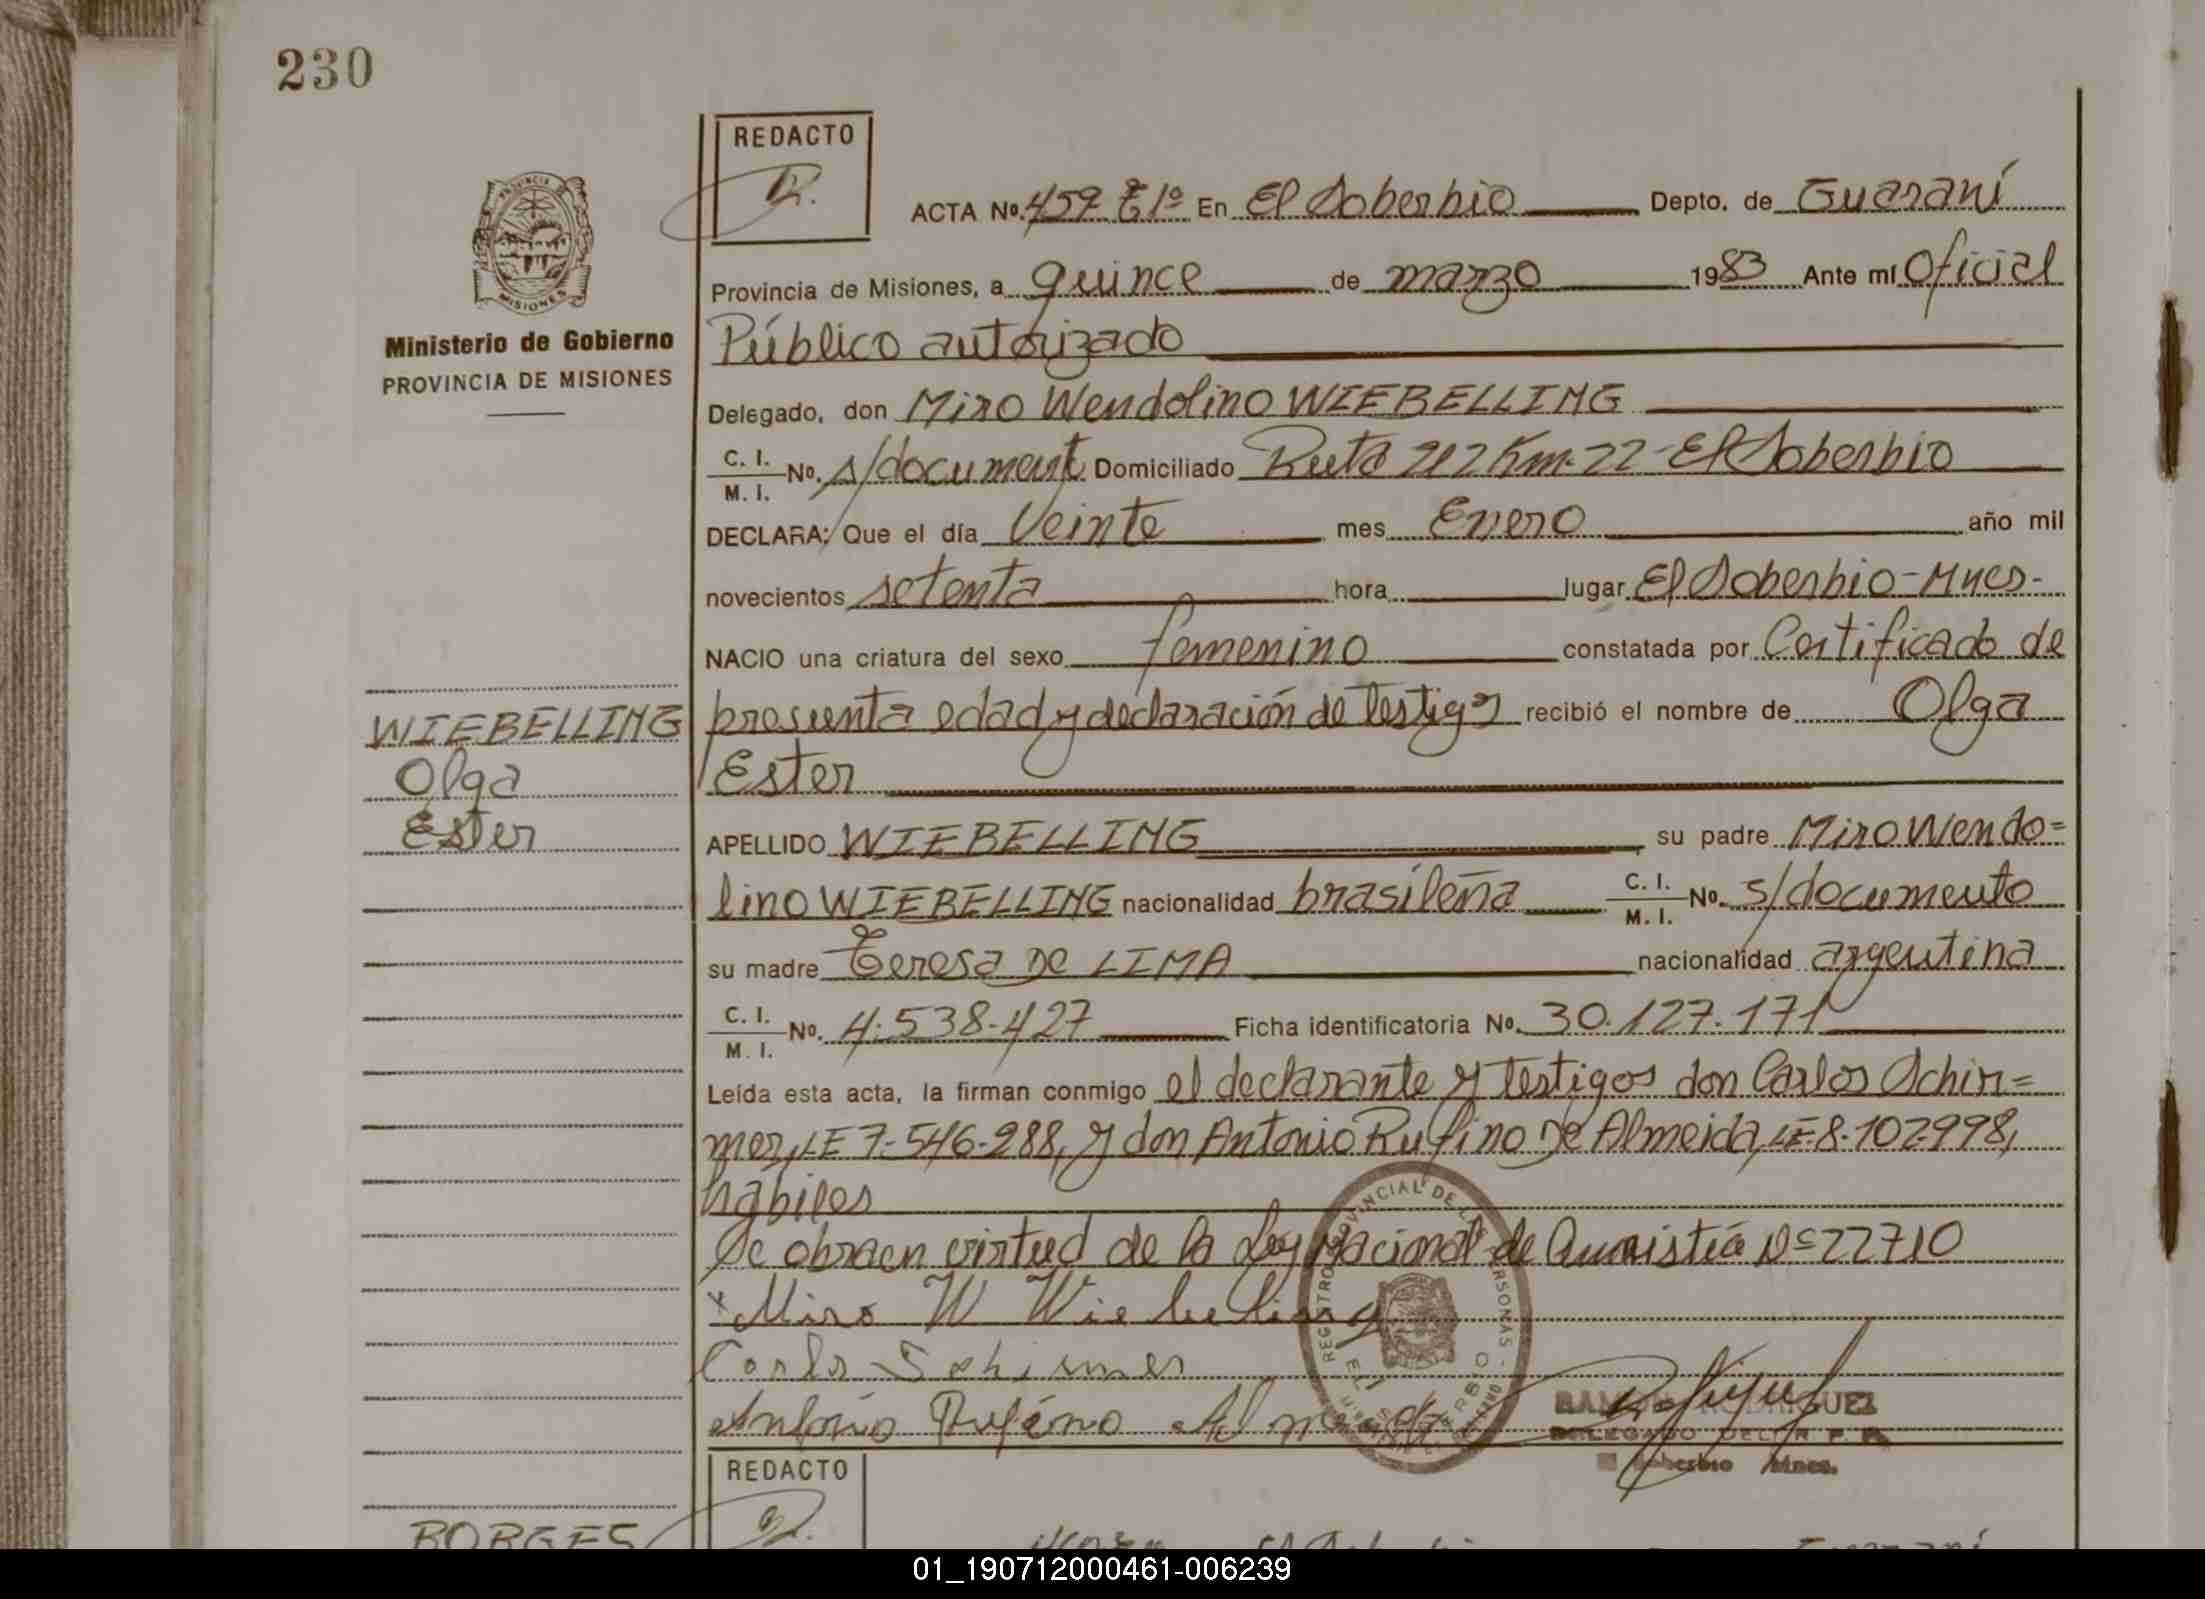 230
REDACTO
ACTA Nº 459 Tº 1º En El Soberbio Depto. de Guaraní
Provincia de Misiones, a quince de marzo 1983 Ante mí Oficial
Público autorizado
Delegado, don Miro Wendolino WIEBELLING
C. I.
M. I. Nº. s/document Domiciliado Ruta 212 Km. 22 - El Soberbio
DECLARA: Que el día Veinte mes Enero año mil
novecientos setenta hora lugar El Soberbio - Mnes -
NACIO una criatura del sexo femenino constatada por Certificado de
presunta edad y declaración de testigos recibió el nombre de Olga
Ester
APELLIDO WIEBELLING su padre Miro Wendo=
lino WIEBELLING nacionalidad brasileña C. I.
M. I. Nº. s/documento
su madre Teresa De LIMA nacionalidad argentina
C. I.
M. I. Nº. 4.538.427 Ficha identificatoria Nº. 30.127.171
Leída esta acta, la firman conmigo el declarante y testigos don Carlos Schir=
mer, LE 7.546.288, y don Antonio Rufino De Almeida, LE. 8.102.998,
hábiles
Se obra en virtud de la Ley Nacional de Amnistía Nº 22710
x Miro W Wiebelling
Carlos Schirmer
Antonio Rufino Almeida
REGISTRO PROVINCIAL DE LAS PERSONAS
EL SOBERBIO
RAMON RODRIGUEZ
DELEGADO DEL R. P. P.
El Soberbio Mnes.
PROVINCIA DE
MISIONES
Ministerio de Gobierno
PROVINCIA DE MISIONES
WIEBELLING
Olga
Ester
REDACTO
BORGES
01_190712000461-006239